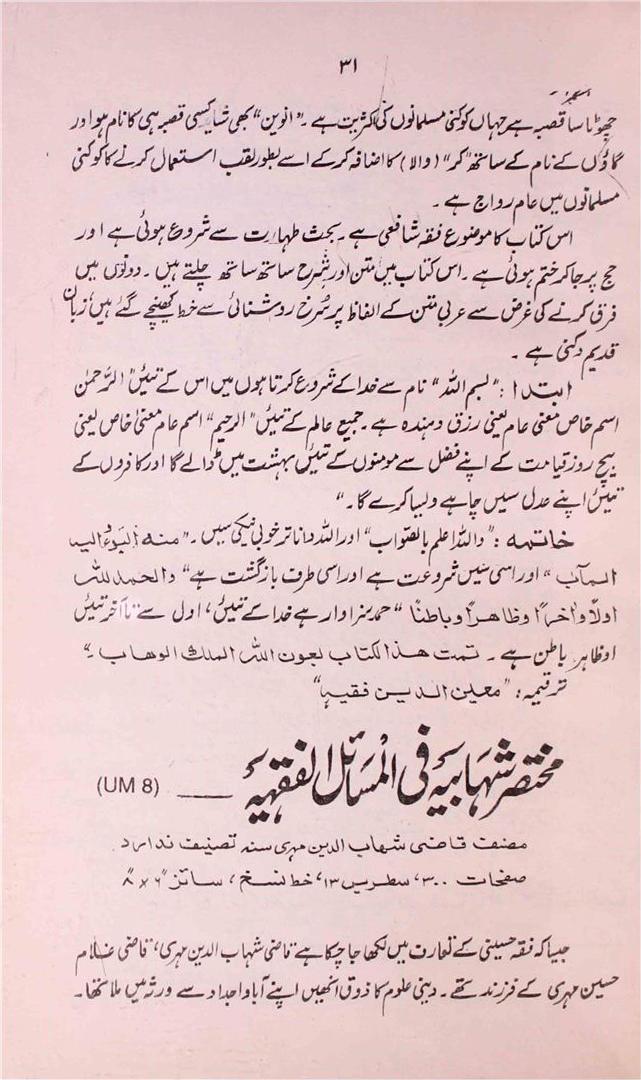 ۳۱
چھوٹا سا قصبہ ہے جہاں کوکنی مسلمانوں کی اکثریت ہے۔ "انوین" بھی شاید کسی قصبہ ہی کا نام ہو اور
گاؤں کے نام کے ساتھ "کر" (والا) کا اضافہ کرکے اسے بطور لقب استعمال کرنے کا کوکنی
مسلمانوں میں عام رواج ہے۔
اس کتاب کا موضوع فقہ شافعی ہے۔ بحث طہارت سے شروع ہوئی ہے اور
حج پر جا کر ختم ہوئی ہے۔ اس کتاب میں متن اور شرح ساتھ ساتھ چلتے ہیں۔ دونوں میں
فرق کرنے کی غرض سے عربی متن کے الفاظ پر سُرخ روشنائی سے خط کھینچے گئے ہیں، زبان
قدیم دکنی ہے۔
ابتدا: "بسم اللہ" نام سے خدا کے شروع کرتا ہوں میں اس کے تئیں "الرَّحمٰن
اسم خاص معنی عام یعنی رزق دہندہ ہے۔ جمیع عالم کے تئیں "الرحیم" اسم عام معنیٰ خاص یعنی
بیچ روز قیامت کے اپنے فضل سے مومنوں کے تئیں بہشت میں ڈالے گا اور کافروں کے
تئیں اپنے عدل سیں چاہے ولیسا کرے گا۔"
خاتمہ: "واللہ اعلم بالصّواب" اور اللہ دانا تر خوبی نیکی سیں۔ "منہ البدءُ والیہ
المآب" اور اسی سیں شروعت ہے اور اسی طرف بازگشت ہے" والحمد للہ
اولاً واٰخراً وظاھراً وباطناً" حمد سزاوار ہے خدا کے تئیں، اول سے تا آخر تئیں
او ظاہر باطن ہے۔ تمت ھذا لکتاب بعون اللہ الملک الوھاب۔"
ترقیمہ: "معین الدین فقیہا"
مختصر شہابیہ فی المسائل الفقہیہ ــــ (UM 8)
مصنف قاضی شہاب الدین مہری سنہ تصنیف ندارد
صفحات ۳۰۰، سطریں ۱۳، خط نسخ، سائز "۶ × "۸
جیسا کہ فقہ حسینی کے تعارف میں لکھا جا چکا ہے قاضی شہاب الدین مہری، قاضی غلام
حسین مہری کے فرزند تھے۔ دینی علوم کا ذوق انھیں اپنے آبا و اجداد سے ورثہ میں ملا تھا۔